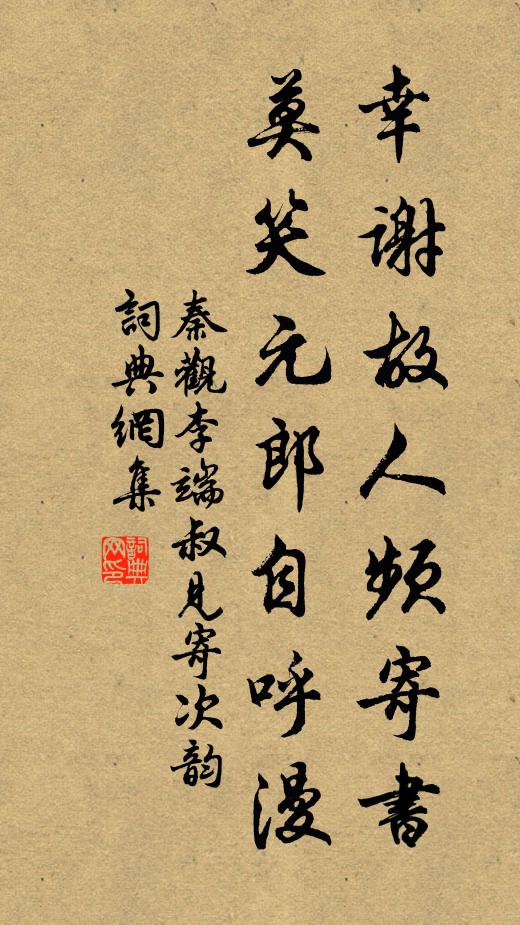 幸謝故人頻寄書
莫笑元郎自呼漫
秦觀李端叔見寄次韵
詞典網集
詞典网印